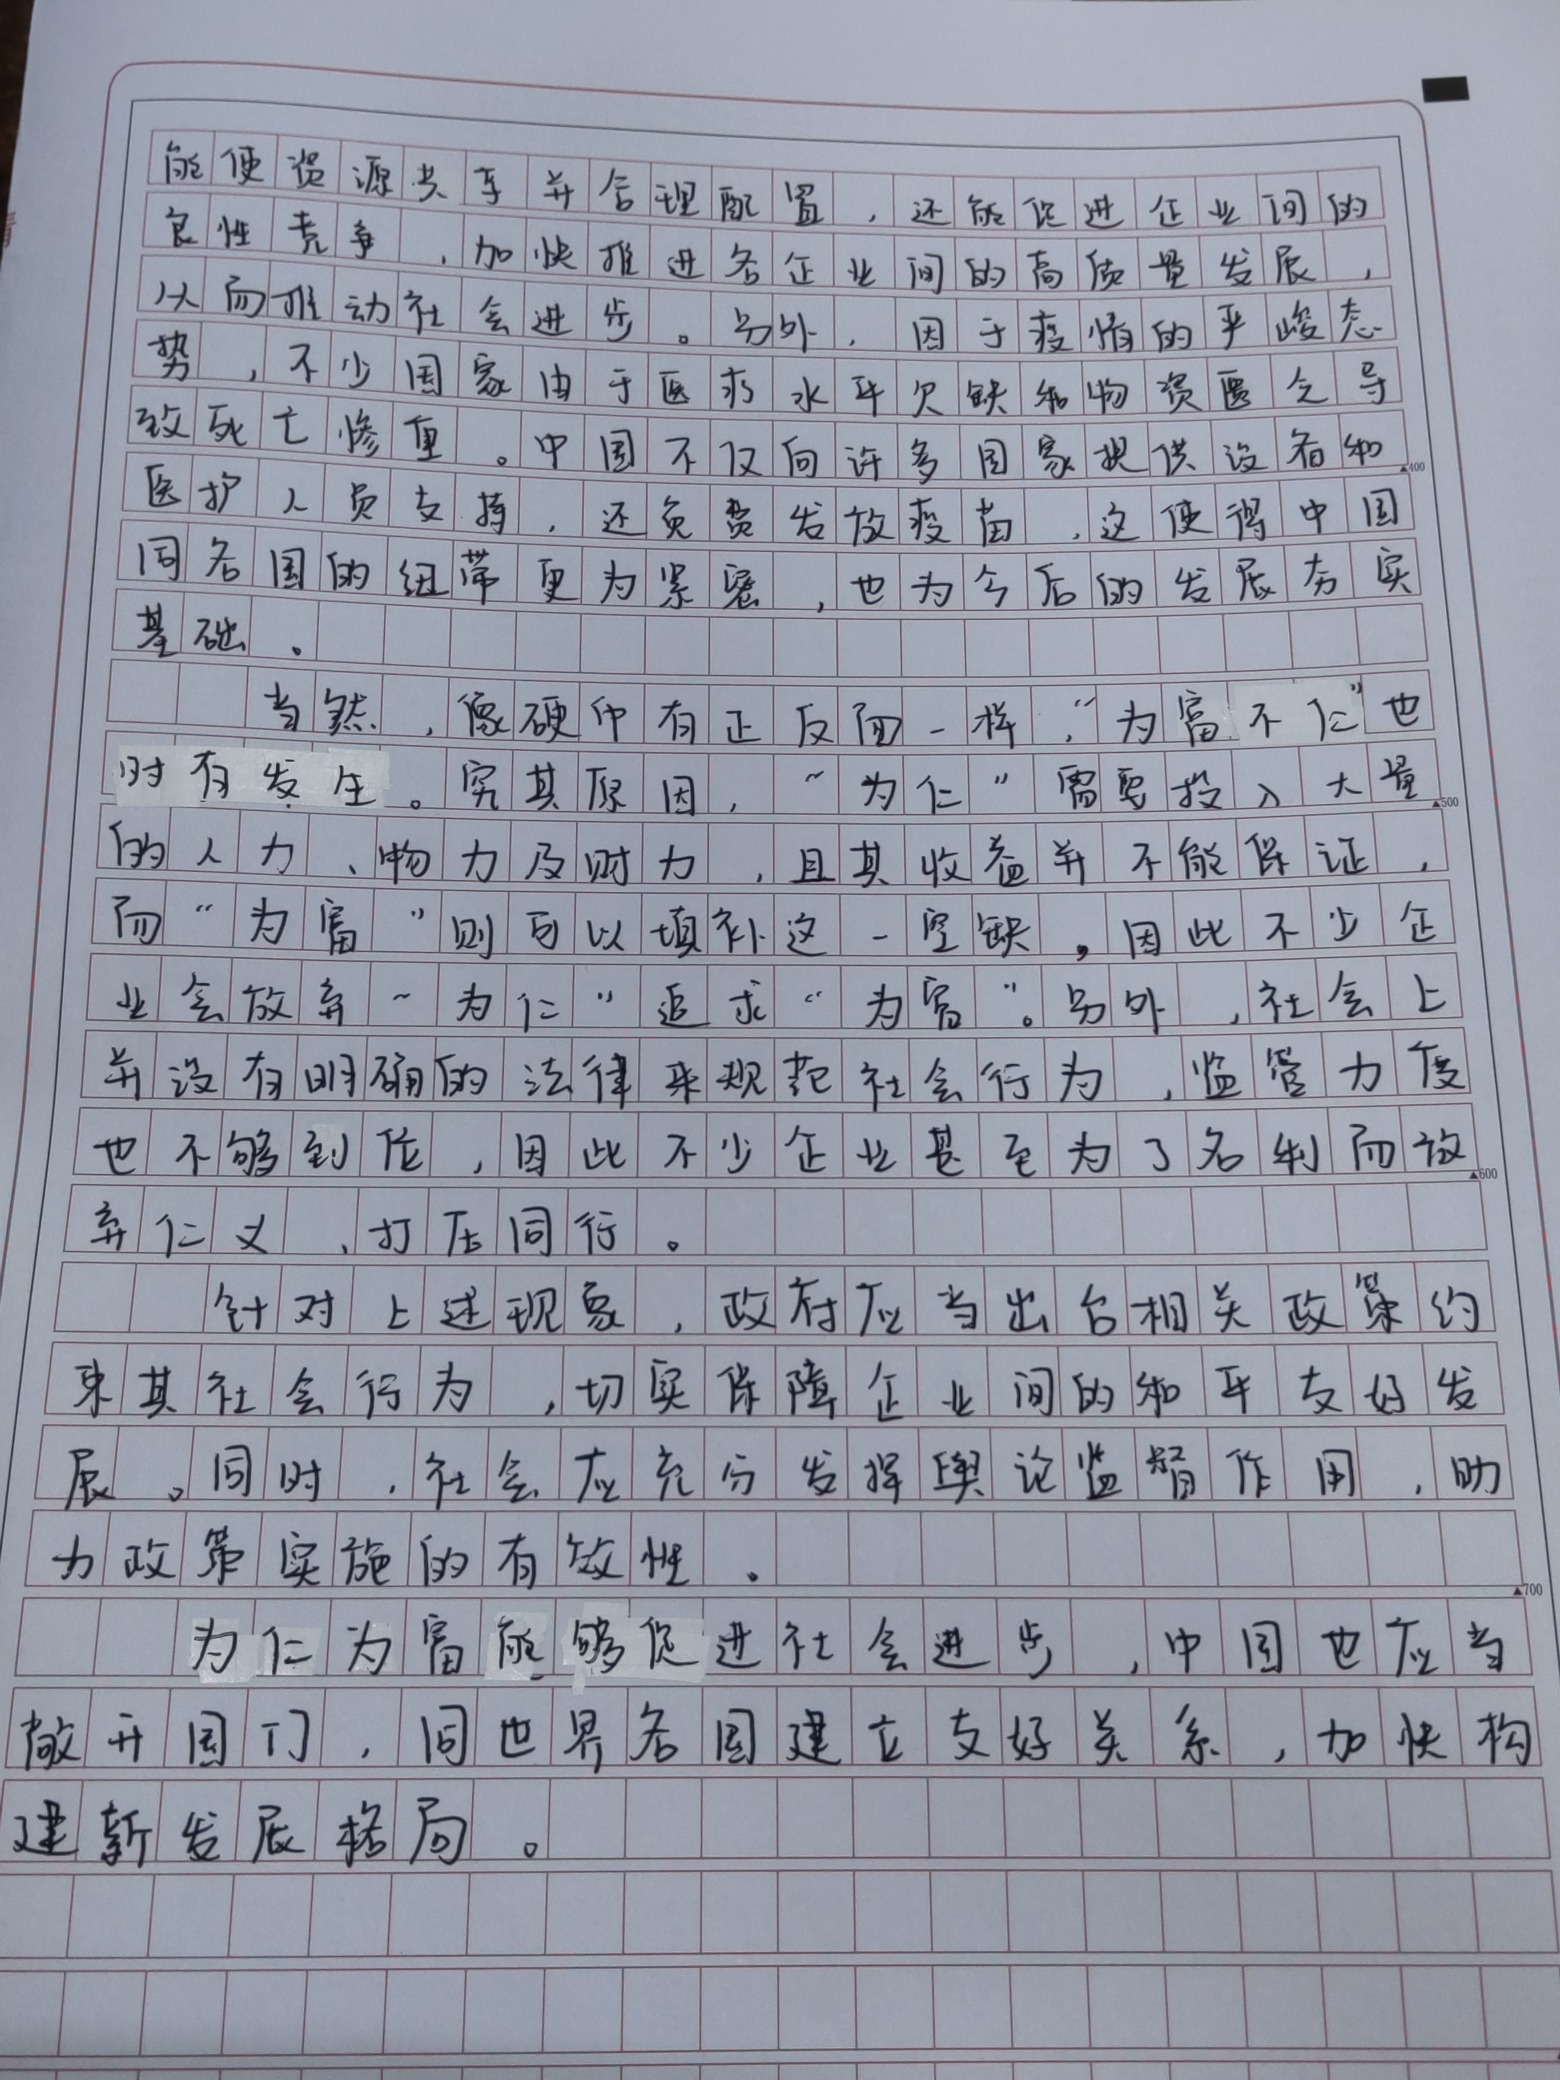 能使资源共享并合理配置，还能促进企业间的
良性竞争，加快推进各企业间的高质量发展，
从而推动社会进步。另外，因于疫情的严峻态
势，不少国家由于医疗水平欠缺和物资匮乏导
致死亡惨重。中国不仅向许多国家提供设备和
400
医护人员支持，还免费发放疫苗，这使得中国
同各国的纽带更为紧密，也为今后的发展夯实
基础。
当然，像硬币有正反面一样，“为富不仁”也
时有发生。究其原因，“为仁”需要投入大量
500
的人力、物力及财力，且其收益并不能保证，
而“为富”则可以填补这一空缺，因此不少企
业会放弃“为仁”追求“为富”。另外，社会上
并没有明确的法律来规范社会行为，监管力度
也不够到位，因此不少企业甚至为了名利而放
600
弃仁义、打压同行。
针对上述现象，政府应当出台相关政策约
束其社会行为，切实保障企业间的和平友好发
展。同时，社会应充分发挥舆论监督作用，助
力政策实施的有效性。
700
为仁为富能够促进社会进步，中国也应当
敞开国门，同世界各国建立友好关系，加快构
建新发展格局。